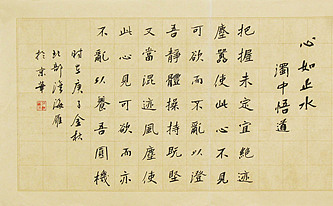 心如止水
濁中悟道
把握未定宜絶迹
塵囂使此心不見
可欲而不亂以澄
吾靜體操持既堅
又當混迹風塵使
此心見可欲而亦
不亂以養吾圓機
時在庚子金秋
於京華